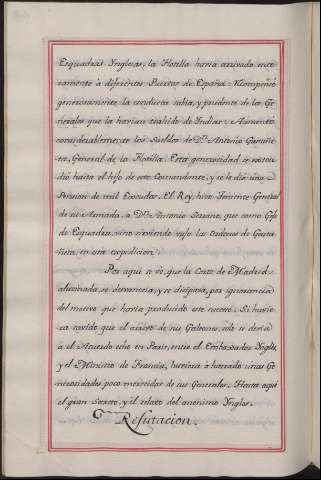 Esquadras Ynglesas, la Flotilla havia arrivado ente
ramente à diferentes Puertos de España. Recompensó
generosamente la conducta sabia, y prudente de los Ge
nerales que la havian trahido de Yndias. Aumentó
considerablemente los Sueldos de Dn. Antonio Gastañe
ta, General de la Flotilla. Esta generosidad se exten
dió hasta el hijo de este Comandante, y se le dió una
Pension de mil Escudos. El Rey, hizo Teniente General
de su Armada, à Dn. Antonio Serrano, que como Gefe
de Esquadra, vino sirviendo vajo las Ordenes de Gasta
ñeta, en esta expedicion.
Por aqui se vé, que la Corte de Madrid
alucinada, se desvanecia, y se disipava, por ignorancia
del motivo que havia producido este suceso. Si huvie
ra savido que el arrivo de sus Galeones, solo se devia
al Acuerdo echo en Paris, entre el Embaxador Ynglés,
y el Ministro de Francia, huviera ahorrado unas Ge
nerosidades poco merecidas de sus Generales. Hasta aqui
el gran Secreto, y el relato del anonimo Yngles.
Refutacion.